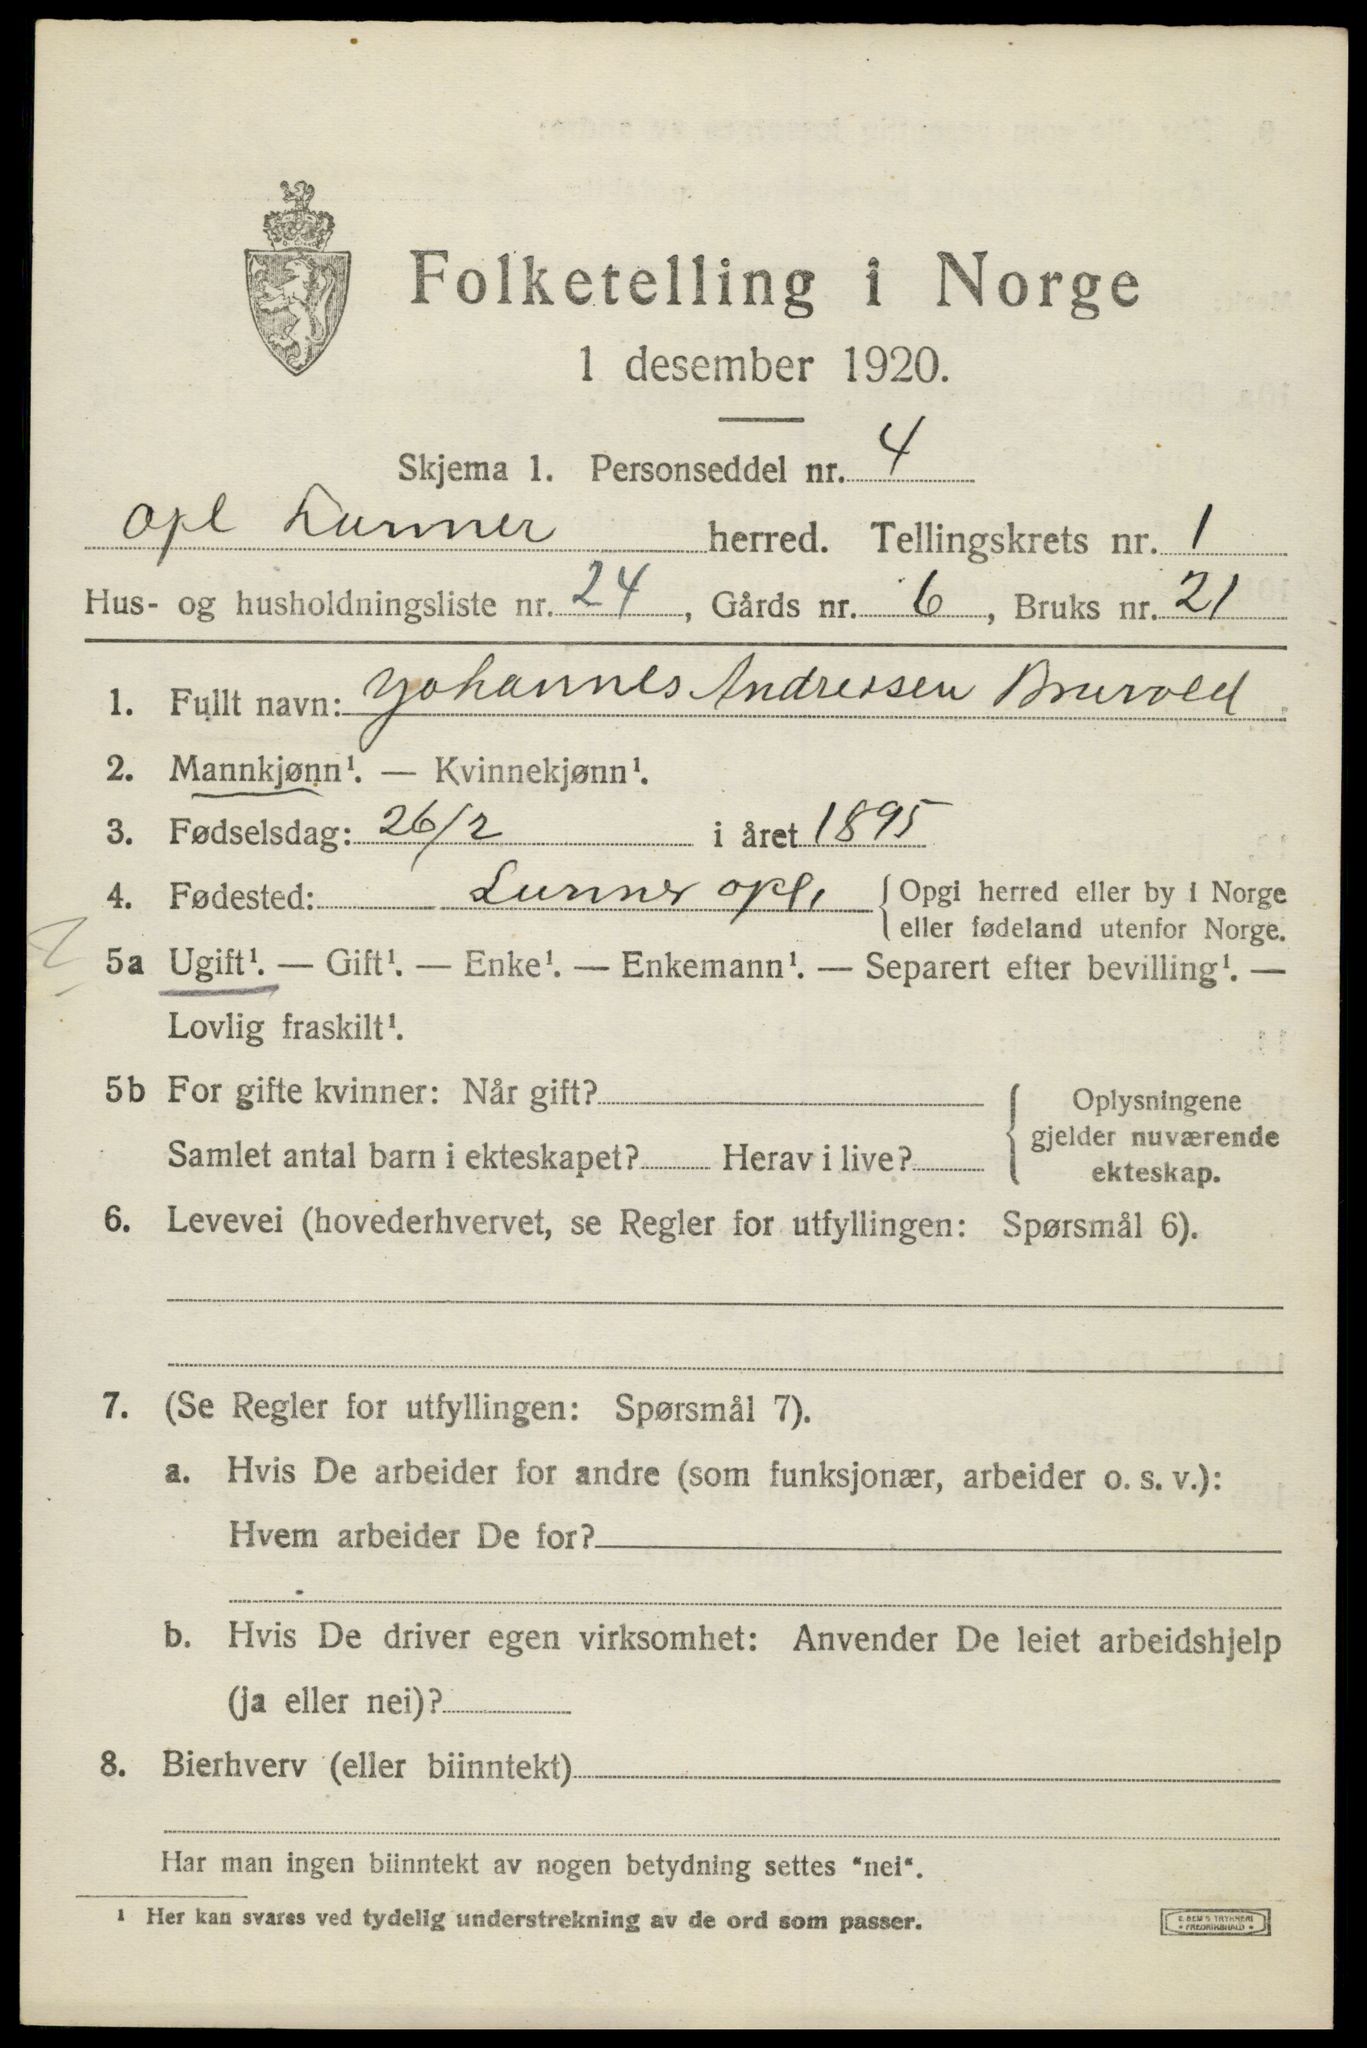 Folketelling i Norge
1 desember 1920.
Skjema 1. Personseddel nr. 4
Opl Lunner herred. Tellingskrets nr. 1
Hus- og husholdningsliste nr. 24, Gårds nr. 6, Bruks nr. 21
1. Fullt navn: Johannes Andreasen Bruvold
2. Mannkjønn¹. — Kvinnekjønn¹.
3. Fødselsdag: 26/2 i året 1895
4. Fødested: Lunner opl. { Opgi herred eller by i Norge
eller fødeland utenfor Norge.
5a Ugift¹. — Gift¹. — Enke¹. — Enkemann¹. — Separert efter bevilling¹. —
Lovlig fraskilt¹.
5b For gifte kvinner: Når gift?
Samlet antal barn i ekteskapet? Herav i live?
Oplysningene
gjelder nuværende
ekteskap.
6. Levevei (hovederhvervet, se Regler for utfyllingen: Spørsmål 6).
7. (Se Regler for utfyllingen: Spørsmål 7).
a. Hvis De arbeider for andre (som funksjonær, arbeider o. s. v.):
Hvem arbeider De for?
b. Hvis De driver egen virksomhet: Anvender De leiet arbeidshjelp
(ja eller nei)?
8. Bierhverv (eller biinntekt)
Har man ingen biinntekt av nogen betydning settes "nei".
¹ Her kan svares ved tydelig understrekning av de ord som passer.
E. SEM'S TRYKKERI
* FREDRIKSHALD *